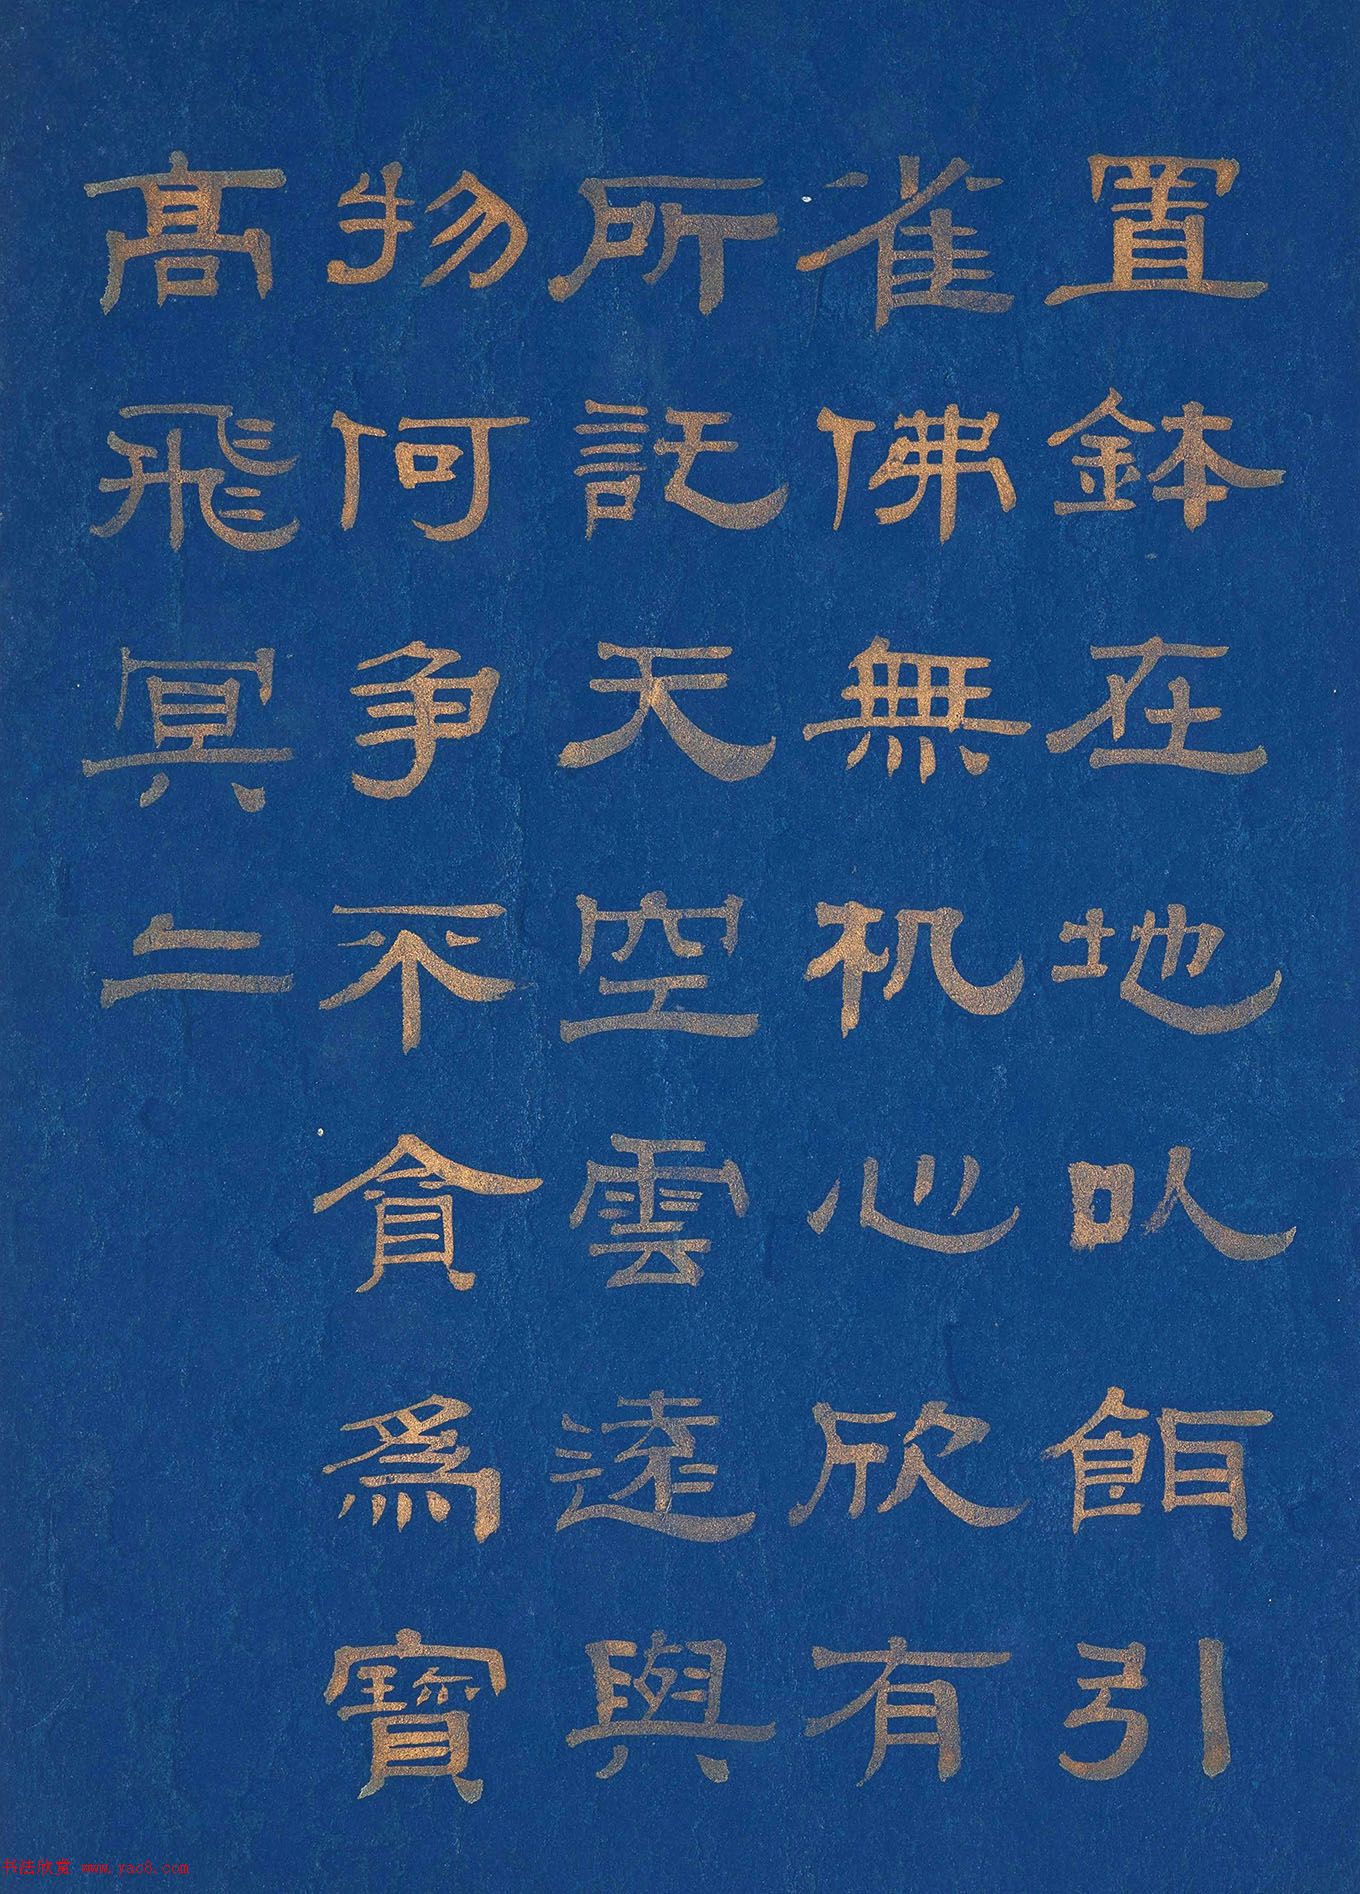 置鉢在地以餌引
雀佛無机心欣有
所託天空雲逵與
物何争不貪為寶
高飛冥二
书法欣赏 www.yac8.com